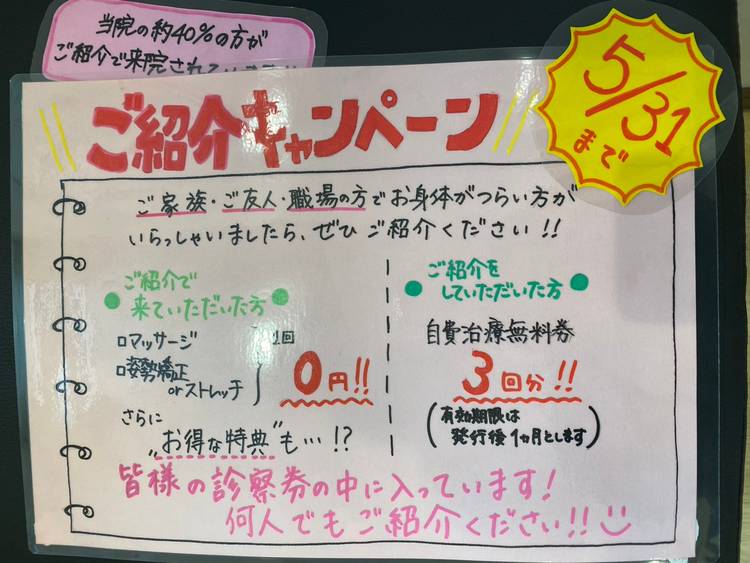 当院の約40%の方が
ご紹介で来院されて
ご紹介キャンペーン
5/31
まで
ご家族・ご友人・職場の方でお身体がつらい方が
いらっしゃいましたら、ぜひご紹介ください!!
ご紹介で
来ていただいた方
□マッサージ
□姿勢矯正
orストレッチ
1回
0円!!
さらに
"お得な特典"も…!?
ご紹介を
していただいた方
自費治療無料券
3回分!!
(有効期限は
発行後1ヵ月とします)
皆様の診察券の中に入っています!
何人でもご紹介ください!!